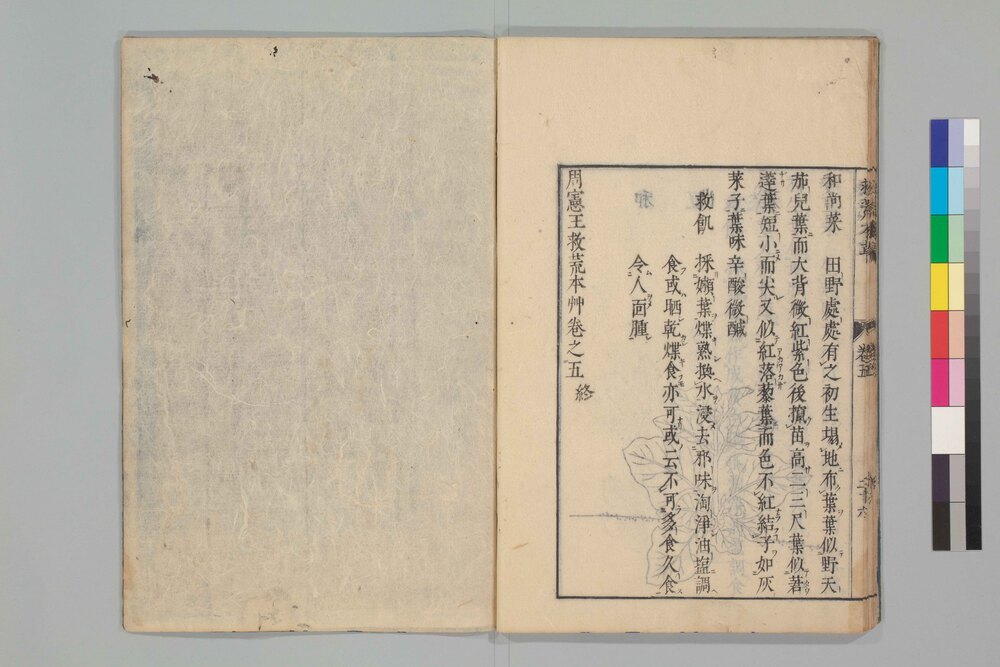 和尚菜 田野處處有之初生塌地布葉葉似野天
茄兒葉而大背微紅紫色後攛苗高二三尺葉似莙
薘葉短小而尖又似紅落藜葉而色不紅結子如灰
菜子葉味辛酸微鹹
救飢 採嫩葉煠熟換水浸去邪味淘淨油塩調
食或晒乾煠食亦可或云不可多食久食
令人面腫
周憲王救荒本艸卷之五 終